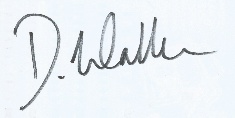 D. Walker